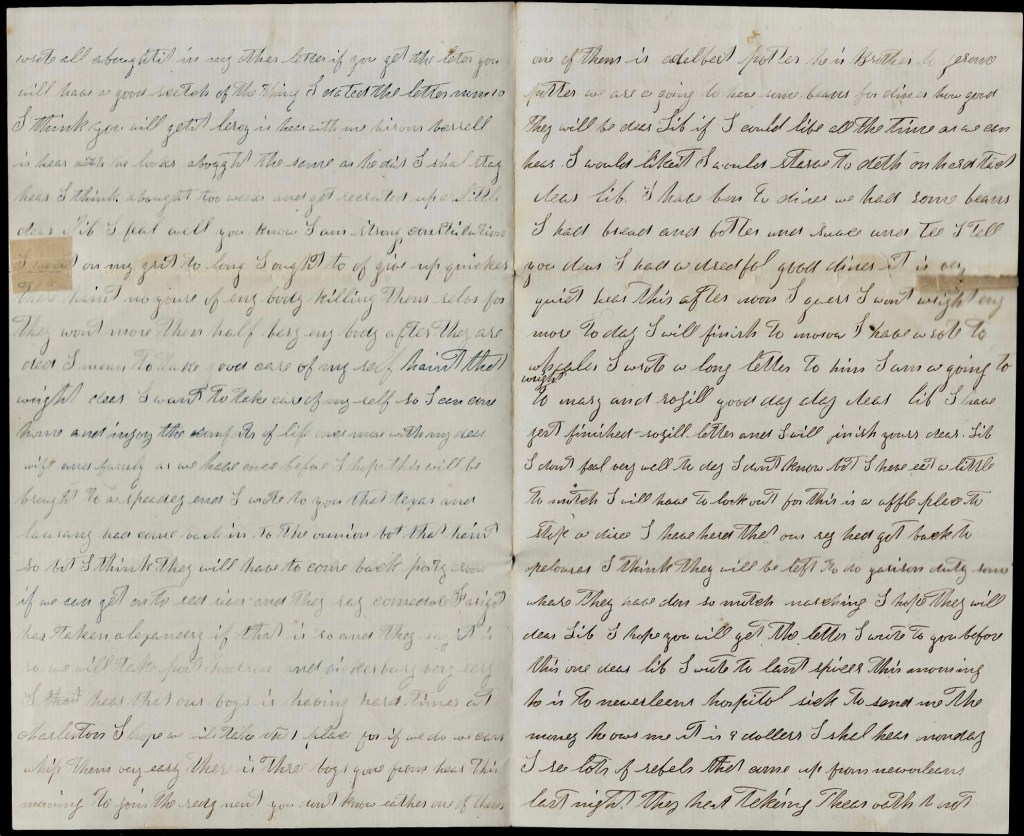 wrote all abought it in my other letter if you get the leter you
will have a good scetch of the thing I dated the letter num 10
I think you will get it leroy is hear with me hirom barrell
is hear with me looks abought the same as he did I shal stay
hear I think abought too weaks and get recruted up a little
dear Lib I feal well you know I am strong constitution
I went on my grit to long I ought to of give up quicker
there haint no youse of eny body killing them selvs for
they wont more then half bery eny body after they are
ded I mean to take good care of my self haint that
wright dear I want to take care of my self so I can come
home and injoy the comforts of life once more with my dear
wife and family as we have once before I hope this will be
brought to a speedey end I wrote to you that texas and
had come back in to the ounion but that haint
so but I think they will have to come back prety soon
if we can get onto red river and they say comedore Farigot
has taken alexandry if that is so and they say it is
so we will take port hudson and vicksburg very esey
I hear that our boys is having hard times at
charleston I hope we will take that place for if we do we can
whip them very easy ther is thre boys gone from hear this
morning to join the regment you dont know eather one of them
one of them is adelbert potter he is Brother to gerome
potter we are a going to have some beans for diner how good
they will be dear Lib if I could live all the time as we can
hear I would like it I would starve to deth on hard tact
dear lib I have ben to diner we had some beans
I had bread and botter and and tee I tell
you dear I had a dredful good diner it is very
quiet hear this after noon I guess I wont wright eny
more to day I will finish to morow I have wrote to
I wrote a long letter to him I am a going to
wright
to mary and rozill good day day dear lib I have
jest finished rozill letter and I will finish yours dear Lib
I dont feal very well to day I dont know but I have eat a little
to mutch I will have to lock out for this is a place to
a diner I have herd that our reg had got back to
opelousas I think they will be left to do garison duty some
whare they have don so mutch marching I hope they will
dear Lib I hope you will get the letter I wrote to you before
this one dear lib I wrote to this morning
ho is to neworleens hospitol sick to send me the
money he ows me it is 8 dollers I shal hear monday
I see lots of rebels that come up from neworleans
last night. they hav taking theer oath to not